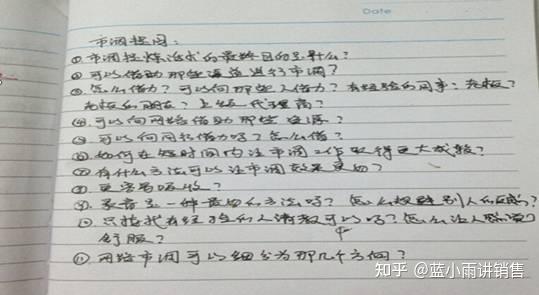 Date
市调提问：
①市调提炼话术的最终目的是什么？
②可以借助那些渠道进行市调？
③怎么借力？可以向那些人借力？有经验的同事：老板？
老板的朋友？上级代理商？
④可以向网络借助那些资源？
⑤可以向同行借力吗？怎么借？
⑥如何在短时间内让市调工作取得更大成效？
⑦有什么方法可以让市调效果更好？
⑧更容易吸收？
⑨录音是一种最好的方法吗？怎么观察别人的反应？
⑩只找我有经验的人请教可以吗？怎么让人际
舒服？
⑪网路市调可以细分为那几个方向？
知乎 @蓝小雨讲销售